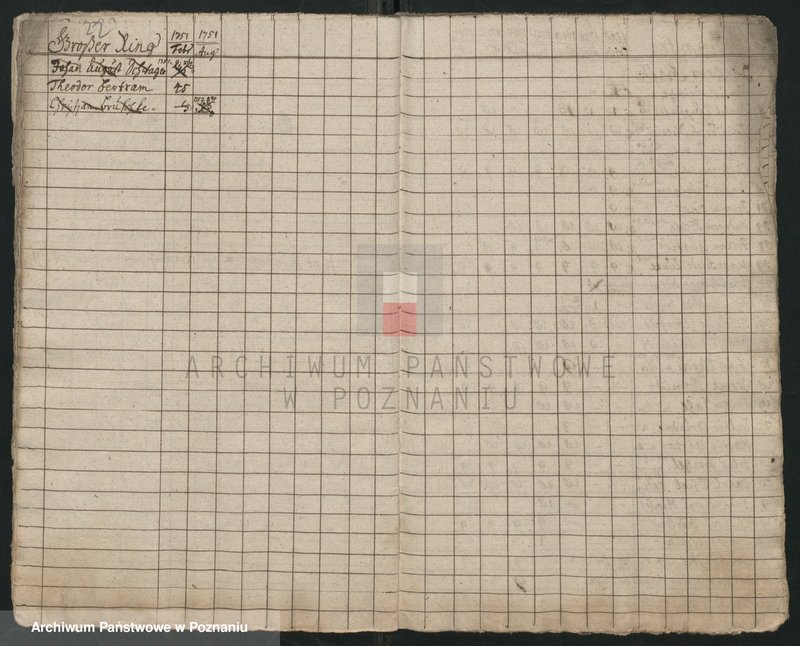 22
Großer Ring 1751 Febr 1751 Aug
Johan August
Theodor Bertram 45
Christian
ARCHIWUM PAŃSTWOWE
W POZNANIU
Archiwum Państwowe w Poznaniu